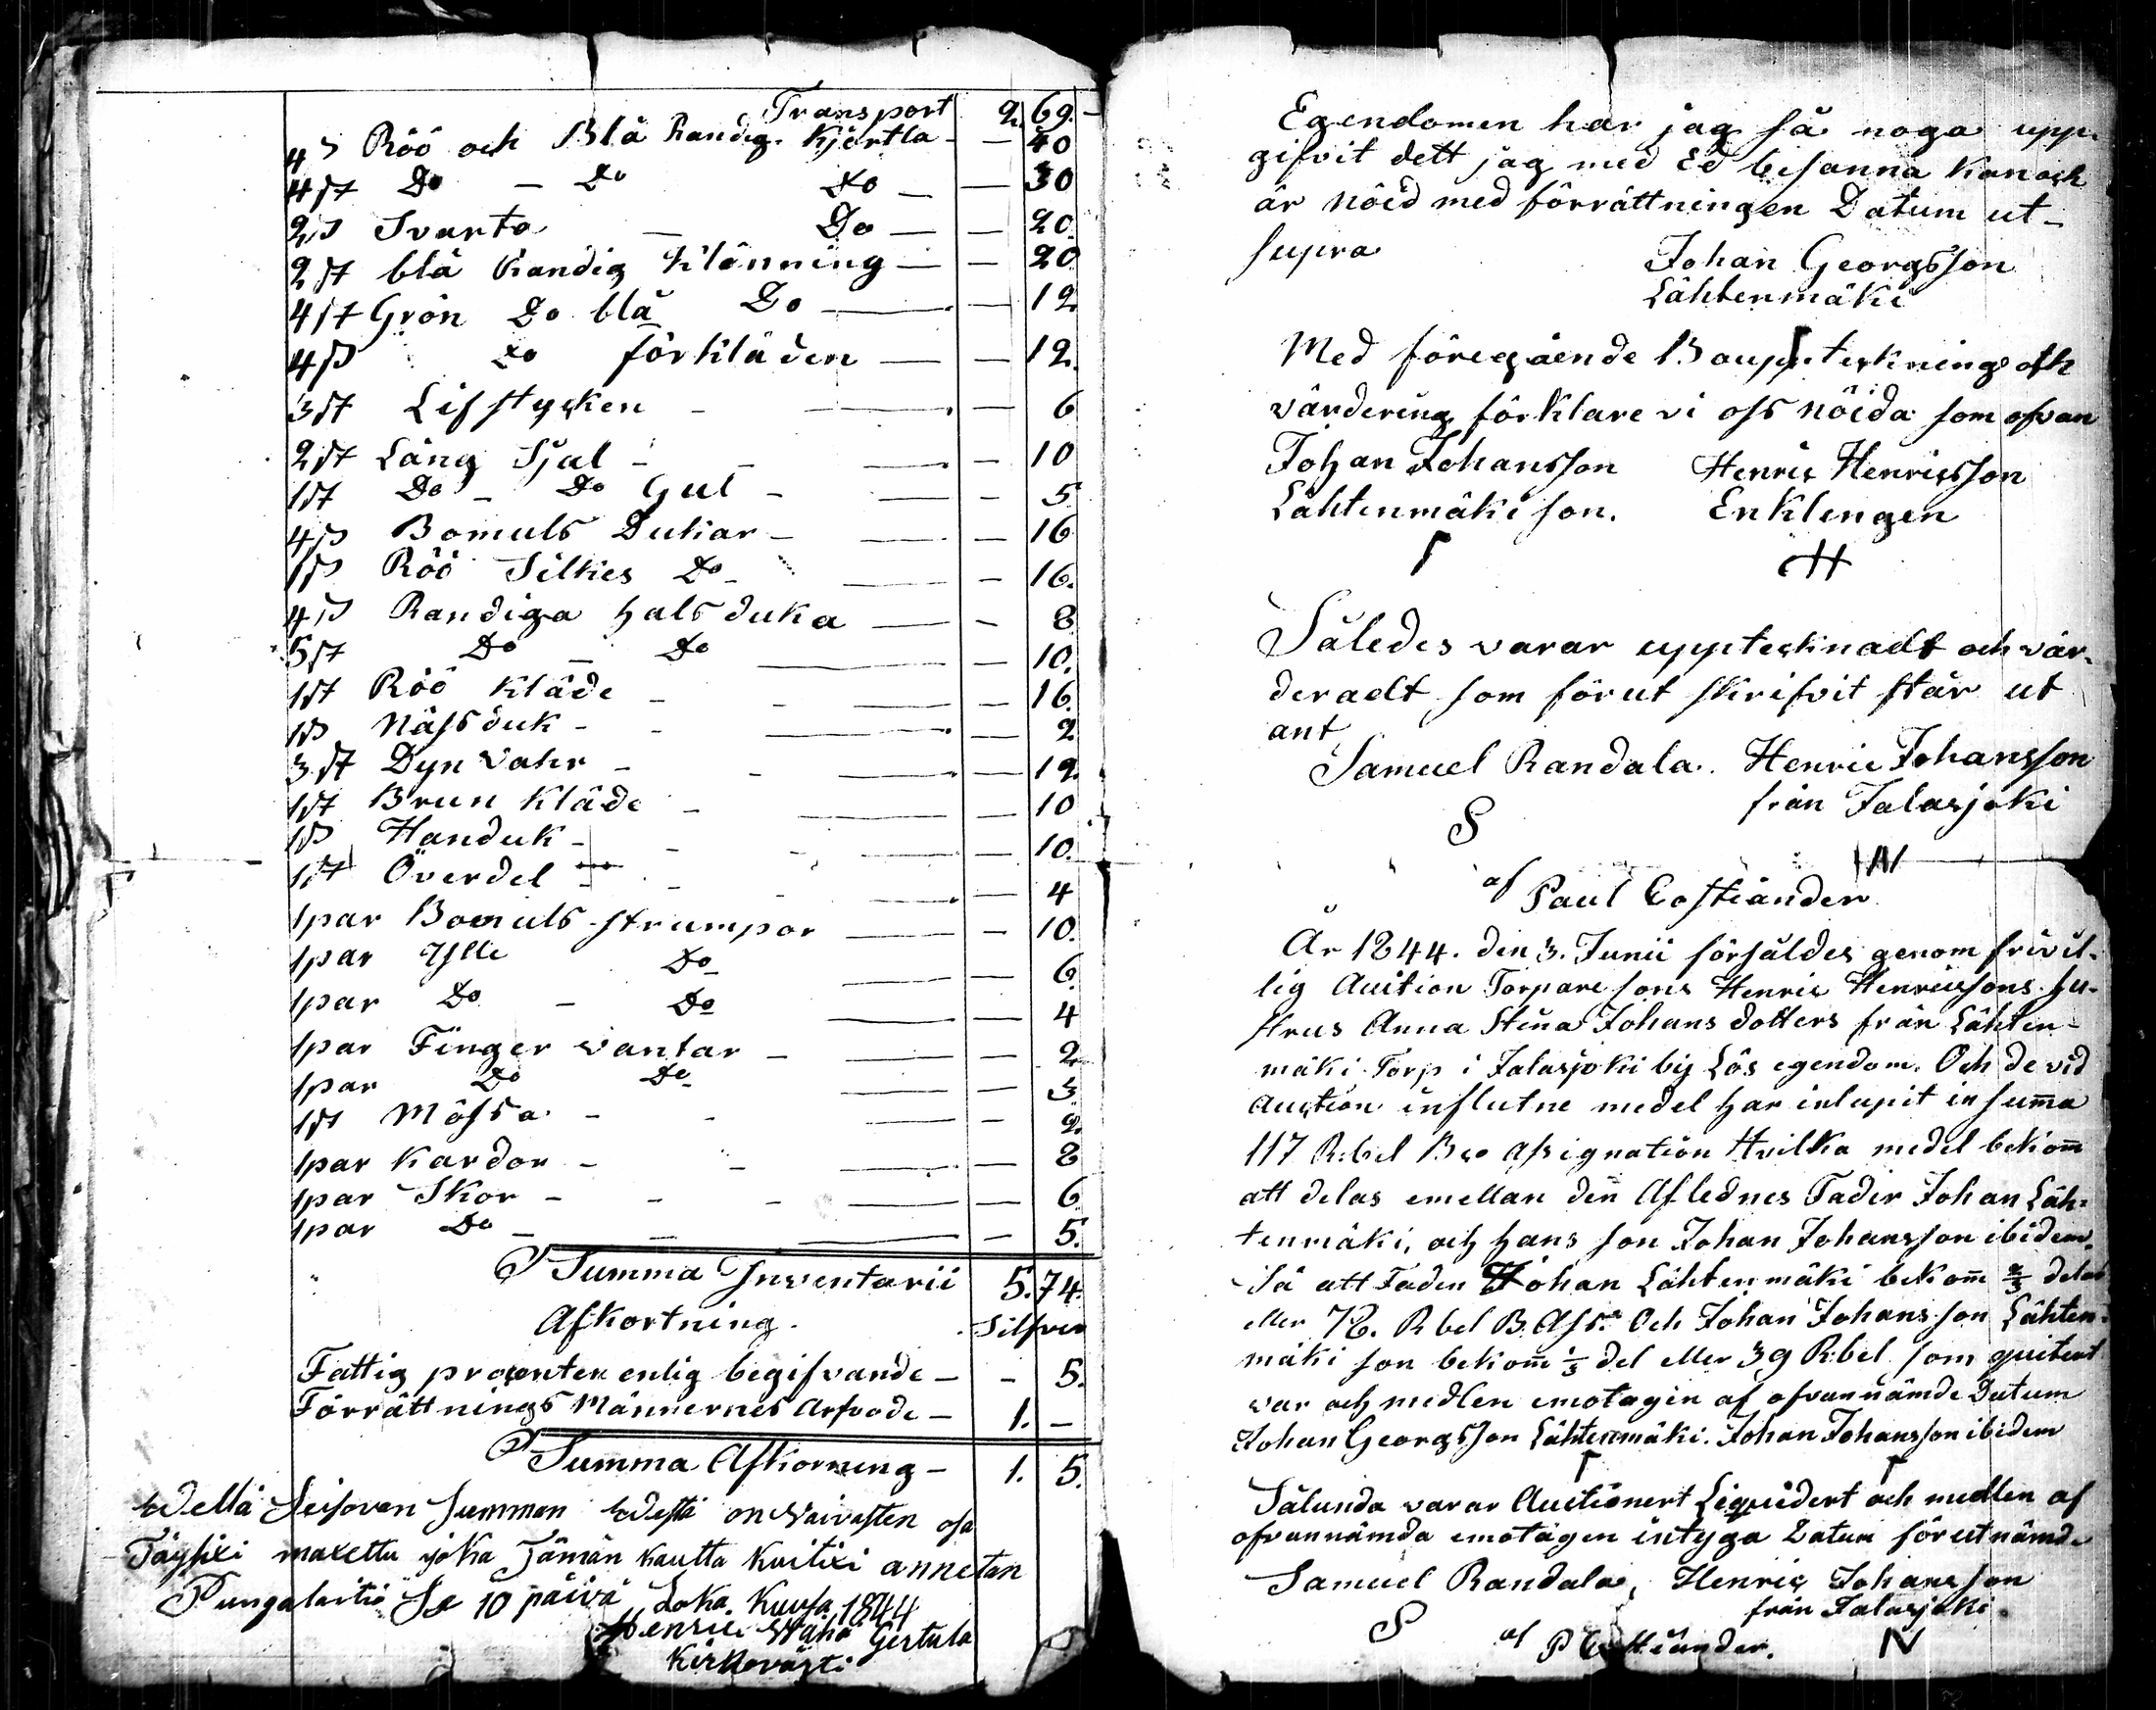 Transport 2. 69.
4 st Röö och Blå Randig. Kjortla — — 40
4 st Do — Do Do — — 30
2 st Svarta — Do — — 20.
2 st blå Randig Klönning — — 20
4 st Grön Do blå Do — — 12
4 st Do förkläden — — 12.
3 st Lifstycken — — 6
2 st Lång Sjal — — 10
1 st Do — Do Gul — — 5.
4 st Bomuls Dukar — — 16
1 st Röö Silkes Do — — 16.
4 st Randiga halsduka — — 8
5 st Do — Do — 10.
1 st Röö Kläde — — 16.
1 st Näsduk — — 2
3 st Dyn vahr — — 12
1 st Brun Kläde — — 10
1 st Handuk — — 10.
1 st Överdel — — 4
1 par Bomuls strumpor — — 10.
1 par Ylle Do — — 6.
1 par Do — Do — — 4
1 par Finger vantar — — 2
1 par Do Do — — 3
1 st Mössa — — 2.
1 par Kardor — — 8
1 par Skor — — 6.
1 par Do — — 5.
Summa Inventarii 5. 74.
Afkortning. Silfver
Fattig procenten enlig begifvande — - 5.
Förrättnings Männernes Arfvode — 1. —
Summa Afkorning — 1. 5.
Edellä Seisovan Summan Edestä on Vaivasten osa
Täysixi maxettu joka Tämän kautta kuitixi annetan
Pungalaitio Se 10 päivä Loka Kuusa 1844
Henric Vähä Gertula
Kirkovästi
Egendomen har jag så noga upp-
gifvit dett jag med Ed besanna kan och
är nöid med förrättningen Datum ut-
supra
Johan Georgsson
Lähtenmäki
Med föregående Bouppteckning och
värdering förklare vi oss nöida som ofvan
Johan Johansson Henric Henricsson
Lähtenmäki son. Enklingen
H
Således varar upptecknadt och vär-
deradt som förut skrifvit står ut
ant
Samuel Randala. Henric Johansson
från Jalasjoki
S
N
af Paul Costiander
År 1844. den 3. Junii försåldes genom frivil-
lig Auction Torpare sons Henric Henricssons hu-
strus Anna Stina Johans dotters från Lähten-
mäki Torp i Jalasjoki by Lös egendom. Och de vid
auction influtne medel har inlupit in suma
117 Rubel Bco Assignation Hvilka medel bekom
att delas emellan den Aflednes Fader Johan Läh-
tenmäki, och hans son Johan Johansson ibidem.
Så att Faden Johan Lähtenmäki bekom 2/3 delar
eller 78. Rbel B. Ass. Och Johan Johansson Lähten-
mäki son bekom 1/3 del eller 39 Rbel som quitert
var och medlen emotagin af ofvannämde Datum
Johan Georgsson Lähtenmäki. Johan Johansson ibidem
Sålunda varar Auctionert Liqvidert och medlen af
ofvannämda emotagen intyga Datum förutnämde
Samuel Randala, Henric Johansson
från Jalasjoki.
S af P Costiander. N